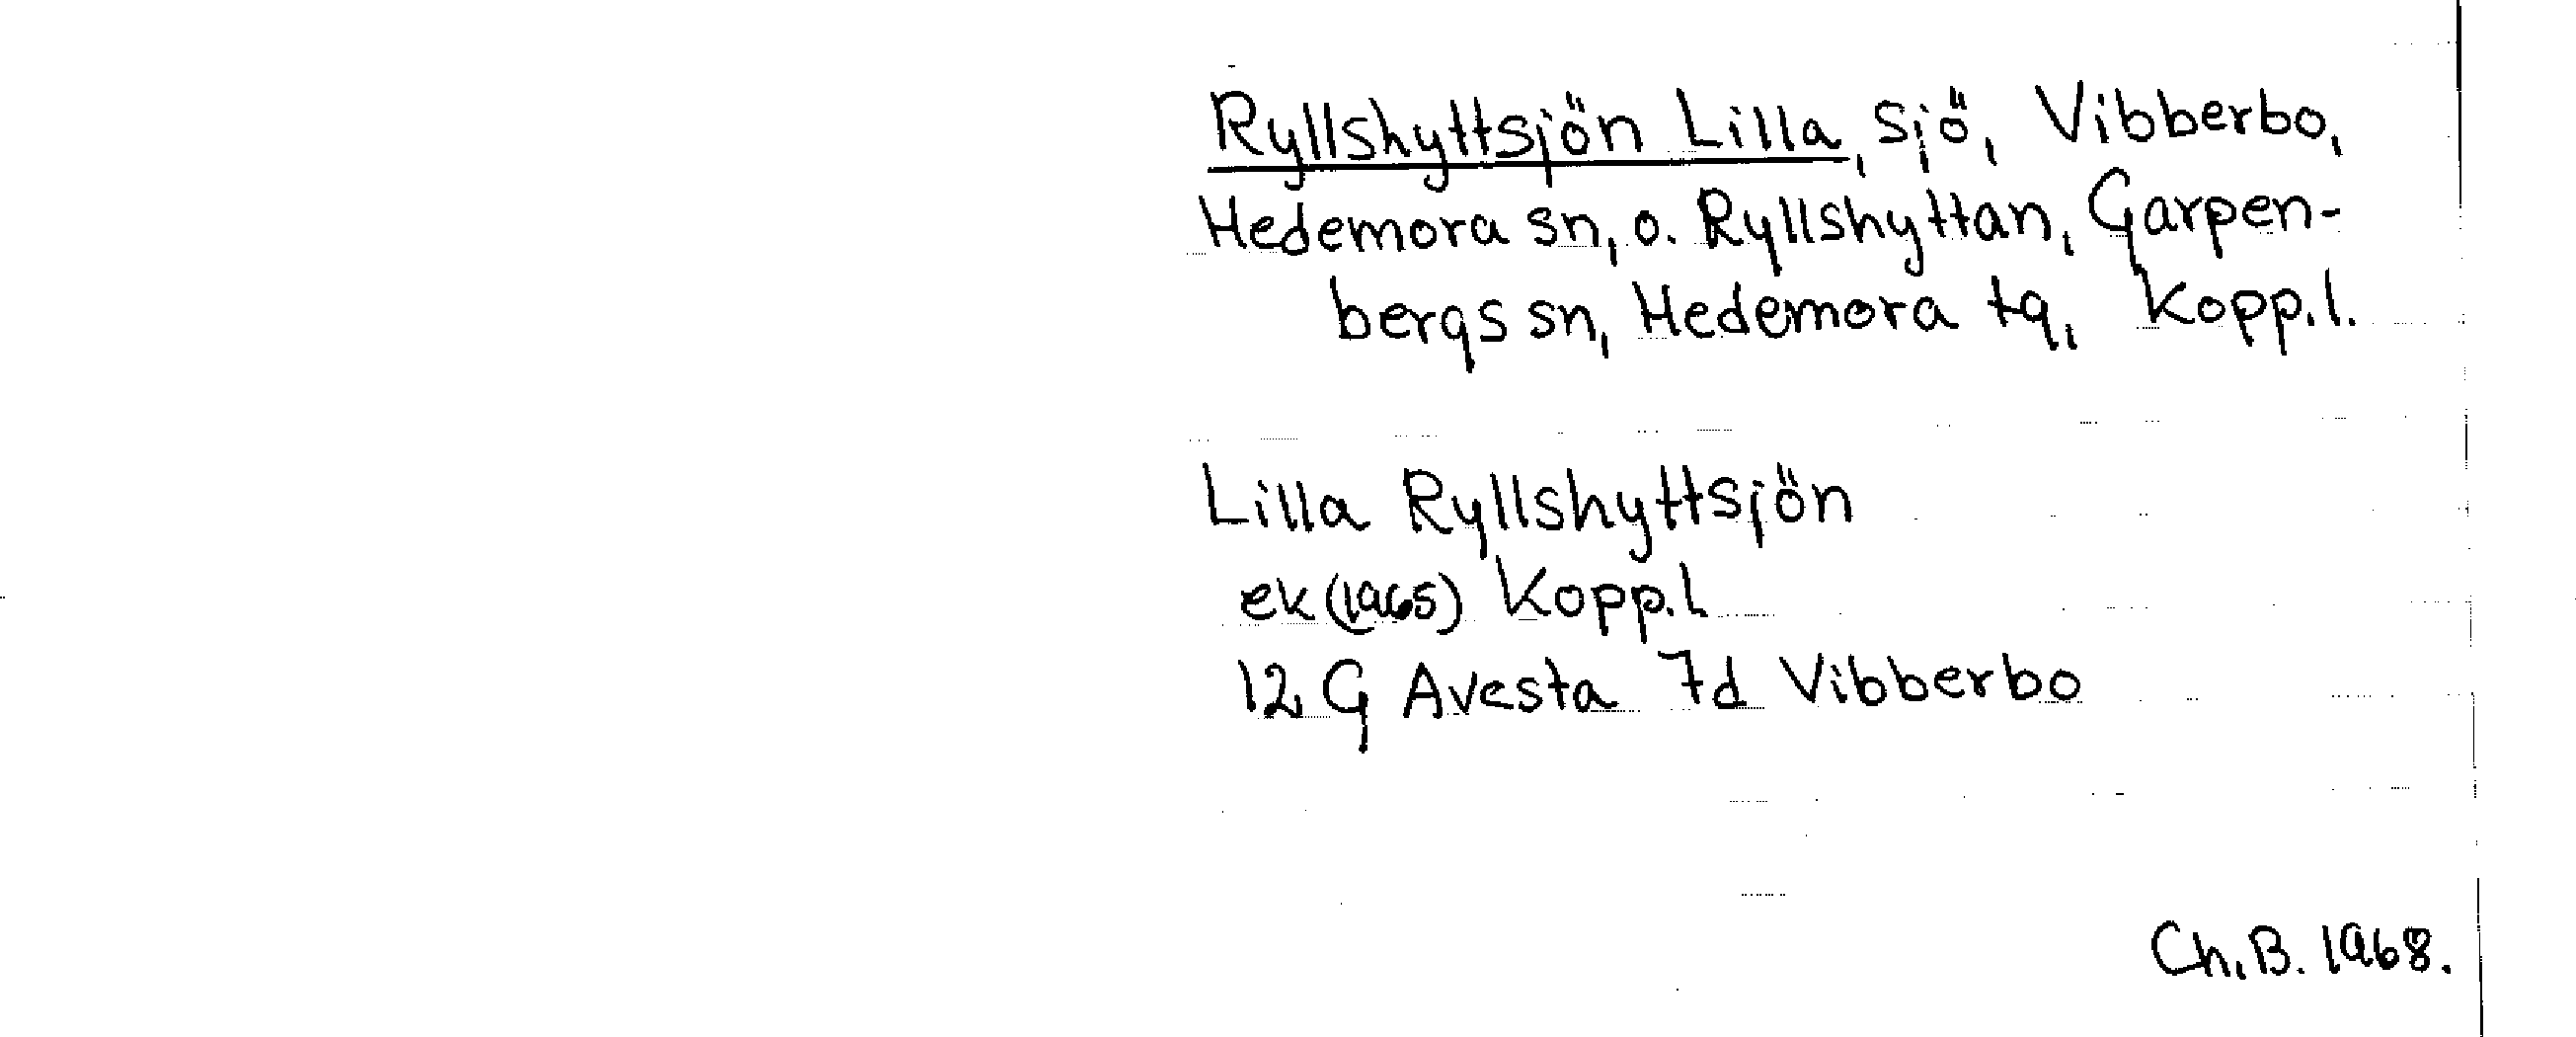 Ryllshyttsjön Lilla, sjö, Vibberbo,
Hedemora sn, o. Ryllshyttan, Garpen-
bergs sn, Hedemora tg, Kopp.l.
Lilla Ryllshyttsjön
ek (1965) Kopp.l
12 G Avesta 7d Vibberbo
Ch.B. 1968.